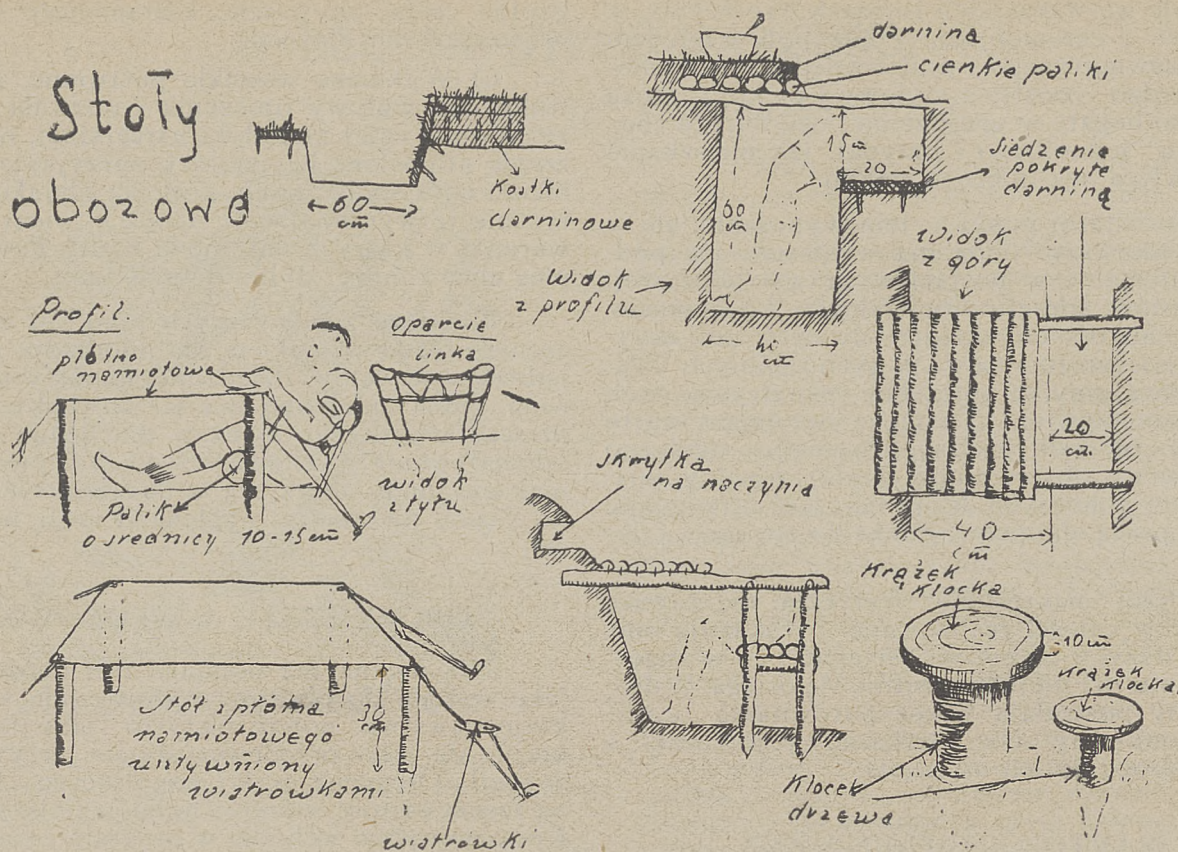 Stoły
obozowe
60
cm
Kostki
darninowe
darnina
cienkie paliki
15 cm
20
60
cm
siedzenie
pokryte
darniną
Widok
z profilu
cm
Widok
z góry
20
cm.
40
cm
Profil.
płótno
namiotowe
Palik
o średnicy 10-15 cm
oparcie
linka
widok
z tyłu
skrytka
na naczynia
Stół z płótna
namiotowego
usztywniony
wiatrówkami
30
cm
wiatrówki
Krążek
klocka
10 cm
Krążek
klocka
Klocek
drzewa